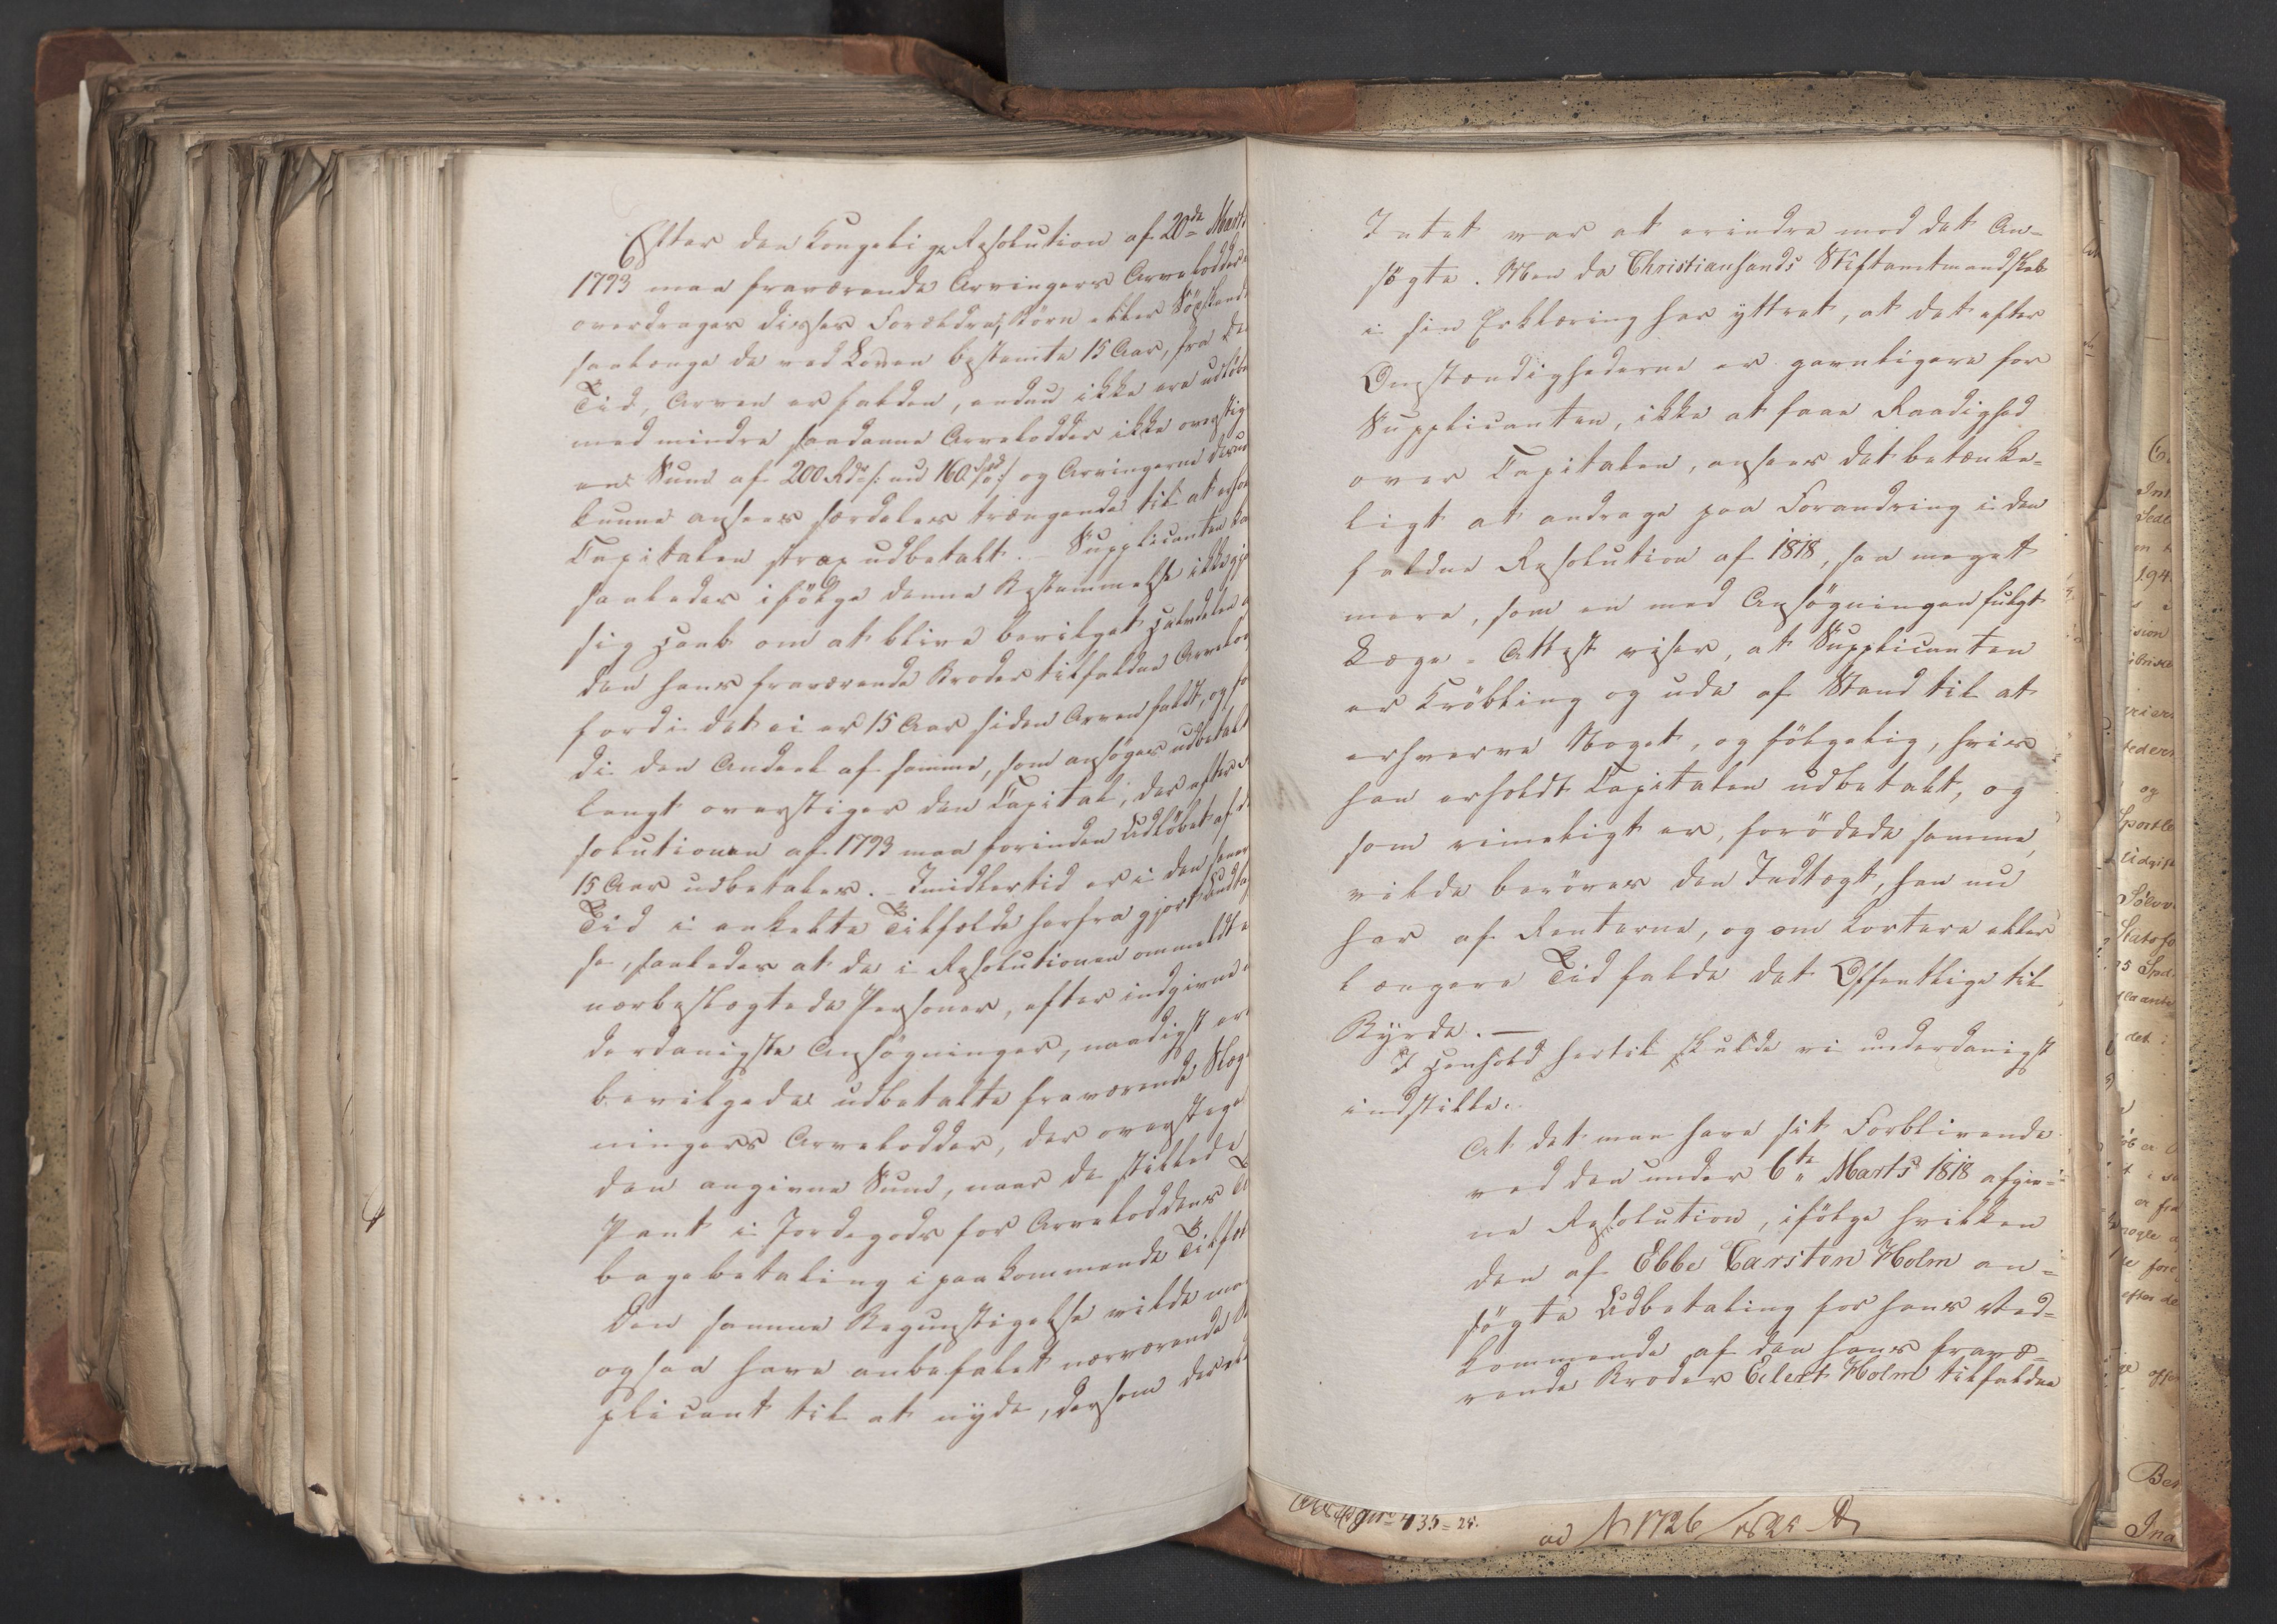 Efter den kongelige Resolution af 20de Marts
1793 maa fraværende Arvingers Arvelodder
overdrages disses Forældre, Börn eller Södskende
saalænge de ved Loven bestemte 15 Aar, fra de
Tid, Arven er falden, endnu ikke ere udlöbe
med mindre saadanne Arvelodder ikke overstig
en Sum af 200 Rd /: nu 160 Spd :/ og Arvingerne
kunne ansees særdeles trængende til at erho
Capitalen strax udbetalt. – Supplicanten ka
saaledes ifölge denne Bestemmelse ikke gjö
sig Haab om at blive bevilget Halvdelen a
den hans fraværende Broder tilfaldne Arvelod
fordi det ei er 15 Aar siden Arven faldt, og for
di den Andeel af samme, som ansöges udbetalt
langt overstiger den Capital, der efter
solutionen af 1793 maa forinden Udlöbet af de
15 Aar udbetales. – Imidlertid er i den senere
Tid i enkelte Tilfælde herfra gjort Undta
se, saaledes at de i Resolutionen ommeldte
nærbeslægtede Personer, efter indgivne
derdanigste Ansögninger, naadigst ere
bevilgede udbetalte fraværende Slægt
ninges Arvelodder, der overstege
den angivne Sum, naar de stillede
Pant i Jordegods for Arveloddens Ti
bagebetaling i paakommende Tilfæl
Den samme Begunstigelse vilde man
ogsaa have anbefalet nærværende Su
plicant til at nyde, dersom der el
Intet var at erindre mod det An-
sögte. Men da Christiansands Stiftamtmandskab
i sin Erklæring har yttret, at det efter
Omstændighederne er gavnligere for
Supplicanten, ikke at faae Raadighed
over Capitalen, ansees det betænke-
ligt at andrage paa Forandring i den
faldne Resolution af 1818, saa meget
mere, som en med Ansögningen fulgt
Læge-Attest viser, at Supplicanten
er Kröbling og ude af Stand til at
erhverve Noget, og fölgelig, hvis
han erholdt Capitalen udbetalt, og
som rimeligt er, forödede samme,
vilde beröves den Indtægt, han nu
har af Renterne, og om kortere eller
længere Tid falde det Offentlige til
Byrde. —
I Henhold hertil skulde vi underdanigst
indstille:
At det maa have sit Forblivende
ved den under 6te Marts 1818 afgiv-
ne Resolution, ifölge hvilken
den af Ebbe Carsten Holm an-
sögte Udbetaling for hans Ved-
kommende af den hans fravæ-
rende Broder Eilert Holm tilfaldne
435=25.
ad N 1726/1825 D